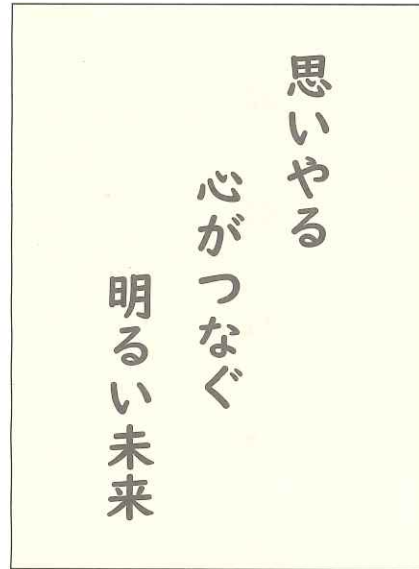 思いやる
心がつなぐ
明るい未来